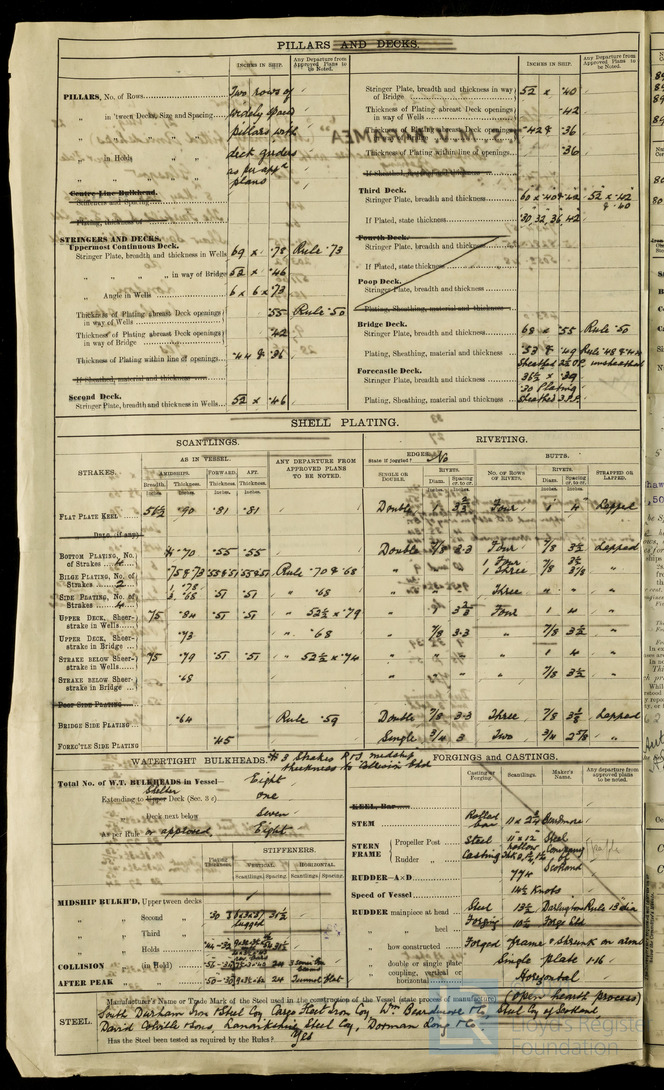 PILLARS AND DECKS.
INCHES IN SHIP.
Any Departure from Approved Plans to be Noted.
PILLARS, No. of Rows
Two rows of
„ in 'tween Decks, Size and Spacing
widely spaced
pillars with
„ in Holds
deck girders
as per app^d
plans
Centre Line Bulkhead.
Stiffeners and Spacing
Plating, thickness of
STRINGERS AND DECKS.
Uppermost Continuous Deck.
Stringer Plate, breadth and thickness in Wells
69 x .78
Rule .73
„ „ „ in way of Bridge
52 x .46
„ Angle in Wells
6 x 6 x .73
Thickness of Plating abreast Deck openings in way of Wells
.55
Rule .50
Thickness of Plating abreast Deck openings in way of Bridge
.42
Thickness of Plating within line of openings
.44 & .36
If Sheathed, material and thickness
Second Deck.
Stringer Plate, breadth and thickness in Wells
52 x .46
INCHES IN SHIP.
Any Departure from Approved Plans to be Noted.
Stringer Plate, breadth and thickness in way of Bridge
52 x .40
Thickness of Plating abreast Deck openings in way of Wells
.42
Thickness of Plating abreast Deck openings in way of Bridge
.42 & .36
Thickness of Plating within line of openings
.36
If Sheathed, material and thickness
Third Deck.
Stringer Plate, breadth and thickness
60 x .40 & .42
52 x .42 & .40
If Plated, state thickness
.30 .32 .36 .42
Fourth Deck.
Stringer Plate, breadth and thickness
If Plated, state thickness
Poop Deck.
Stringer Plate, breadth and thickness
Plating, Sheathing, material and thickness
Bridge Deck.
Stringer Plate, breadth and thickness
68 x .55
Rule .50
Plating, Sheathing, material and thickness
.53 & .49
Sheathed 2½ O.P.
unsheathed
Forecastle Deck.
Stringer Plate, breadth and thickness
36½ x .39
.30 Plating
Plating, Sheathing, material and thickness
Sheathed 3 P.P.
SHELL PLATING.
SCANTLINGS.
RIVETING.
STRAKES.
AS IN VESSEL.
AMIDSHIPS. FORWARD. AFT.
Breadth. Thickness. Thickness. Thickness.
ANY DEPARTURE FROM APPROVED PLANS TO BE NOTED.
EDGES
State if joggled?
No
SINGLE OR DOUBLE.
RIVETS.
Diam. Spacing cr. to cr.
BUTTS.
NO. OF ROWS OF RIVETS.
RIVETS.
Diam. Spacing cr. to cr.
STRAPPED OR LAPPED.
FLAT PLATE KEEL
56½ .90 .81 .81
Double 1 Four 1 4 Lapped
„ Do. (if any)
BOTTOM PLATING, No. of Strakes 4
.70 .55 .55
Double 7/8 3.3 Four 7/8 3½ Lapped
BILGE PLATING, No. of Strakes 2
.75 & .73 .55 & .51 .55 & .51 Rule .70 & .68
1 Four
1 Three 7/8
SIDE PLATING, No. of Strakes 4
.68 .51 .51 „ .68
Three
UPPER DECK, Sheerstrake in Wells
75 .84 .51 .51 „ 52½ x .79
Four 1 4
UPPER DECK, Sheerstrake in Bridge
.73 „ .68
7/8 3.3 „ 7/8 3½ „
STRAKE BELOW Sheerstrake in Wells
75 .79 .51 .51 „ 52½ x .74
„ 1 4 „
STRAKE BELOW Sheerstrake in Bridge
.68
„ 7/8 3½ „
POOP SIDE PLATING
BRIDGE SIDE PLATING
.64 Rule .59
Double 7/8 3.3 Three 7/8 Lapped
FOREC'TLE SIDE PLATING
.45
Single 3/4 3 Two 3/4 2 5/8 „
3 Strakes P & S midship
thickness to
WATERTIGHT BULKHEADS.
Total No. of W.T. BULKHEADS in Vessel
Eight
Extending to Upper Deck (Sec. 3 c)
Shelter
One
„ Deck next below
Seven
As per Rule or approved
Eight
Plating Thickness
STIFFENERS.
VERTICAL. HORIZONTAL.
Scantlings. Spacing. Scantlings. Spacing.
MIDSHIP BULKH'D, Upper tween decks
„ „ Second „
.30
lugged
„ „ Third „
„ „ Holds
COLLISION „ (in Hold)
24
AFTER PEAK „ „
24 Tunnel flat
FORGINGS AND CASTINGS.
Casting or Forging. Scantlings. Maker's Name. Any departure from approved plans to be noted.
KEEL, Bar
STEM
Rolled bar
Beardmore
STERN FRAME
Propeller Post
Steel
Steel
Rudder „
Casting
hollow
Company of
Scotland
RUDDER—A×D
774
Speed of Vessel
14½ Knots
RUDDER mainpiece at head
Steel 13½ Darlington Rule 13 dia
„ „ heel
Forging 10½ Forge Ltd
„ how constructed
Forged frame & Shrunk on arms
„ double or single plate
Single plate 1.16
„ coupling, vertical or horizontal
Horizontal
STEEL.
Manufacturer's Name or Trade Mark of the Steel used in the construction of the Vessel (state process of manufacture)
(Open hearth process)
South Durham Iron & Steel Coy, Cargo Fleet Iron Coy, Wm Beardmore & Co, Steel Coy of Scotland
David Colville & Sons, Lanarkshire Steel Coy, Dorman Long & Co
Has the Steel been tested as required by the Rules?
Yes
Lloyd's Register
Foundation